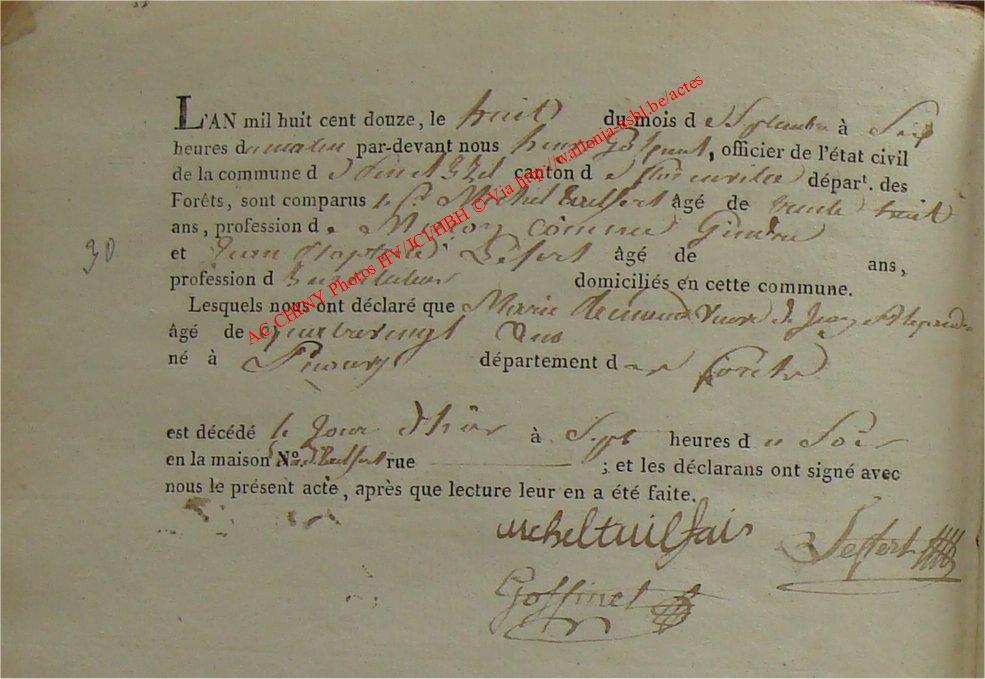 L'AN mil huit cent douze, le huit du mois de Septembre à Six
heures du matin par-devant nous henri Goffinet, officier de l'état civil
de la commune d canton de florenville départ. des
Forêts, sont comparus le Sr Michel tuilfert âgé de trente huit
ans, profession de Maçon comme Gendre
30
et Jean Baptiste Lefert âgé de ans,
profession d domiciliés en cette commune.
Lesquels nous ont déclaré que Marie veuve de Jean
âgé de quatrevingt ans
né à département des forêts
est décédé le jour d'hier à Sept heures du Soir
en la maison No. rue ; et les déclarans ont signé avec
nous le présent acte, après que lecture leur en a été faite.
Goffinet
AC CHINY Photos HV/JCI/HBH © Via http://wallonia-asbl.be/actes